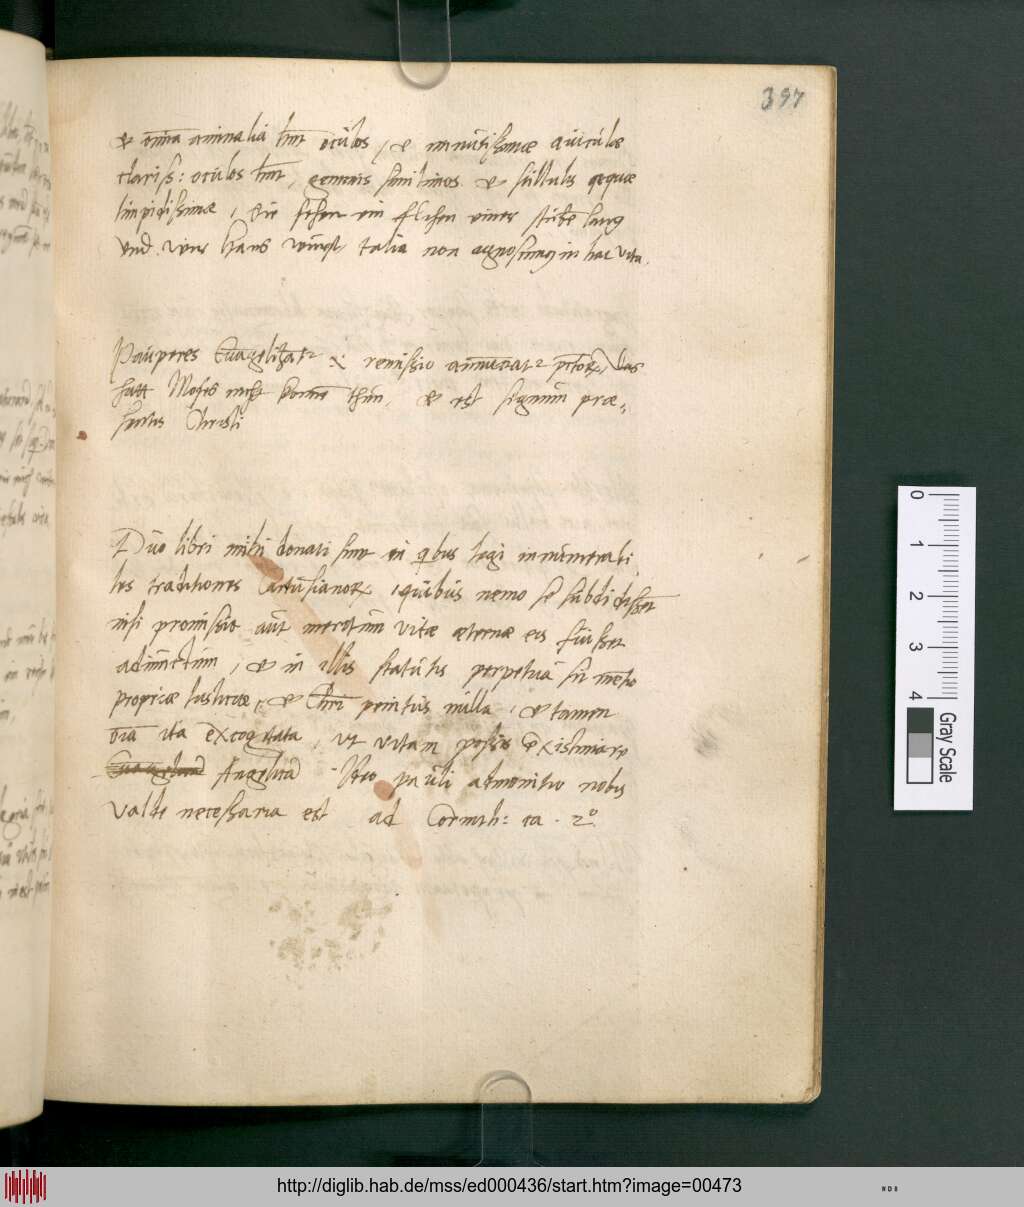 397
& oīa animalia hnt ocūlos, & minūtissimae aūicūlae
clariss: ocūlos hnt, gemmis simillimos & stillulis aquae
limpidissimae, die sehen ein fliehen einer stuben lang
Vnd wir Hans wūrst talia non agnoscimus in hac vita.
Paūperes Eūāgelizātr &c remissio annūciatr pctorum, das
hatt Moses nicht konnē thūn, & est signūm prae-
sentis Christi
Dūo libri mihi donati sunt in qbus legi innūmerabi
les traditiones Cartūsianorum, quibūs nemo se sūbdidisset
nisi promissio aūt meritūm vitae aeternae eis fūisset
adiūnctūm, & in illis statūtis perpetūa fit mētio
propriae iustitiae, & Chri penitūs nūlla, & tamen
oīa ita excogitata, vt vitam possis existimare
Angelicā Haec paūli admonitio nobis
valde necessaria est ad Corinth: ca. 2º.
0 1 2 3 4
Gray Scale
http://diglib.hab.de/mss/ed000436/start.htm?image=00473